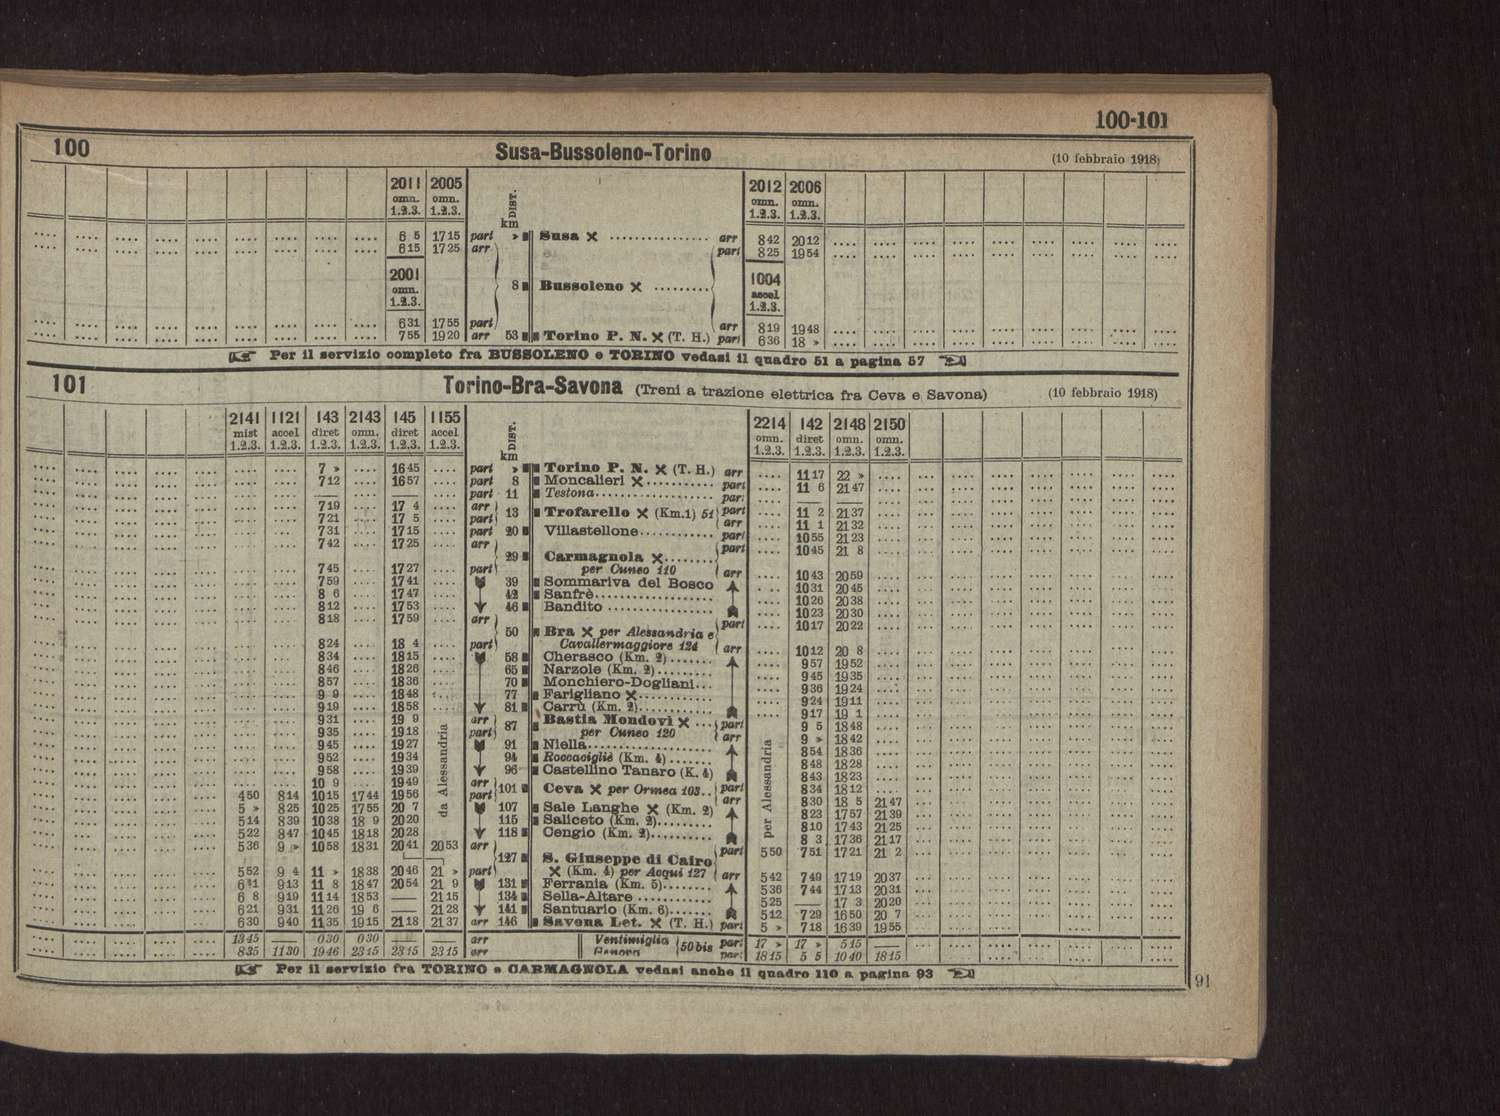 100-101
100 Susa-Bussoleno-Torino (10 febbraio 1918)
2011 2005 DIST. 2012 2006
omn. omn. omn. omn.
1.2.3. 1.2.3. km 1.2.3. 1.2.3.
6 5 17 15 part » Susa ✕ arr 8 42 20 12
6 15 17 25 arr part 8 25 19 54
2001 1004
omn. 8 Bussoleno ✕ accel
1.2.3. 1.2.3.
6 31 17 55 part arr 8 19 19 48
7 55 19 20 arr 53 Torino P. N. ✕ (T. H.) part 6 36 18 »
☞ Per il servizio completo fra BUSSOLENO e TORINO vedasi il quadro 51 a pagina 57 ☜
101 Torino-Bra-Savona (Treni a trazione elettrica fra Ceva e Savona) (10 febbraio 1918)
2141 1121 143 2143 145 1155 DIST. 2214 142 2148 2150
mist accel diret omn. diret accel omn. diret omn. omn.
1.2.3. 1.2.3. 1.2.3. 1.2.3. 1.2.3. 1.2.3. km 1.2.3. 1.2.3. 1.2.3. 1.2.3.
7 » 16 45 part » Torino P. N. ✕ (T. H.) arr 11 17 22 »
7 12 16 57 part 8 Moncalieri ✕ part 11 6 21 47
— — part 11 Testona part — —
7 19 17 4 arr 13 Trofarello ✕ (Km.1) 51 part 11 2 21 37
7 21 17 5 part arr 11 1 21 32
7 31 17 15 part 20 Villastellone part 10 55 21 23
7 42 17 25 arr 29 Carmagnola ✕ part 10 45 21 8
7 45 17 27 part per Cuneo 110 arr 10 43 20 59
7 59 17 41 39 Sommariva del Bosco 10 31 20 45
8 6 17 47 42 Sanfrè 10 26 20 38
8 12 17 53 46 Bandito 10 23 20 30
8 18 17 59 arr 50 Bra ✕ per Alessandria e part 10 17 20 22
8 24 18 4 part Cavallermaggiore 124 arr 10 12 20 8
8 34 18 15 58 Cherasco (Km. 2) 9 57 19 52
8 46 18 26 65 Narzole (Km. 2) 9 45 19 35
8 57 18 36 70 Monchiero-Dogliani 9 36 19 24
9 9 18 48 77 Farigliano ✕ 9 24 19 11
9 19 18 58 81 Carrù (Km. 2) 9 17 19 1
9 31 19 9 arr 87 Bastia Mondovì ✕ part 9 5 18 48
9 35 19 18 part per Cuneo 120 arr 9 » 18 42
9 45 19 27 91 Niella 8 54 18 36
9 52 19 34 94 Roccaciglië (Km. 4) 8 48 18 28
9 58 19 39 96 Castellino Tanaro (K. 4) 8 43 18 23
10 9 19 49 arr 101 Ceva ✕ per Ormea 103 part 8 34 18 12
4 50 8 14 10 15 17 44 19 56 part arr 8 30 18 5 21 47
5 » 8 25 10 25 17 55 20 7 107 Sale Langhe ✕ (Km. 2) 8 23 17 57 21 39
5 14 8 39 10 38 18 9 20 20 115 Saliceto (Km. 2) 8 10 17 43 21 25
5 22 8 47 10 45 18 18 20 28 118 Cengio (Km. 2) 8 3 17 36 21 17
5 36 9 » 10 58 18 31 20 41 20 53 arr 127 S. Giuseppe di Cairo part 5 50 7 51 17 21 21 2
5 52 9 4 11 » 18 38 20 46 21 » part ✕ (Km. 4) per Acqui 127 arr 5 42 7 49 17 19 20 37
9 13 11 8 18 47 20 54 21 9 131 Ferrania (Km. 5) 5 36 7 44 17 13 20 31
6 8 9 19 11 14 18 53 — 21 15 134 Sella-Altare 5 25 — 17 3 20 20
6 21 9 31 11 26 19 6 — 21 28 141 Santuario (Km. 6) 5 12 7 29 16 50 20 7
6 30 9 40 11 35 19 15 21 18 21 37 arr 146 Savona Let. ✕ (T. H.) part 5 » 7 18 16 39 19 55
da Alessandria
per Alessandria
13 45 — 0 30 0 30 — — arr Ventimiglia 50 bis part 17 » 17 » 5 15 —
8 35 11 30 19 46 23 15 23 15 23 15 arr Genova part 18 15 5 5 10 40 18 15
☞ Per il servizio fra TORINO e CARMAGNOLA vedasi anche il quadro 110 a pagina 93 ☜
91